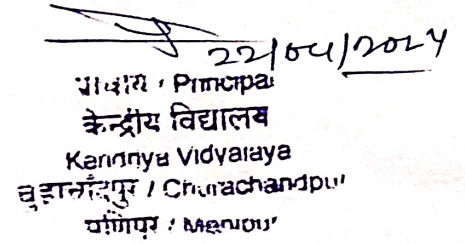 22/04/2024
प्राचार्य / Principal
केन्द्रीय विद्यालय
Kendriya Vidyalaya
चुड़ाचाँदपुर / Churachandpur
मणिपुर / Manipur